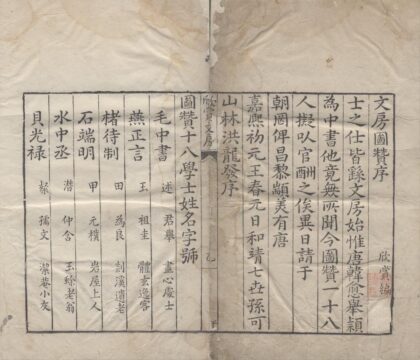 文房圖贊序
欣賞編
士之仕皆繇文房始惟唐韓愈舉穎
為中書他竟無所聞今圖贊一十八
人擬以官酬之俟異日請于
朝罔俾昌黎顓美有唐
嘉熙初元王春元日和靖七世孫可
山林洪龍發序
欣賞文房
乙
圖贊十八學士姓名字號
毛中書 述 君舉 盡心處士
燕正言 玉 祖圭 體玄逸客
楮待制 田 為良 剡溪遺老
石端明 甲 元樸 岩屋上人
水中丞 潛 仲含 玉蜍老翁
貝光祿 粲 孺文 潔菴小友